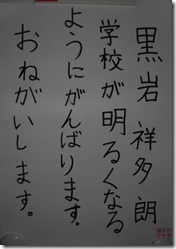 黒岩 祥多朗
学校が明るくなる
ようにがんばります。
おねがいします。